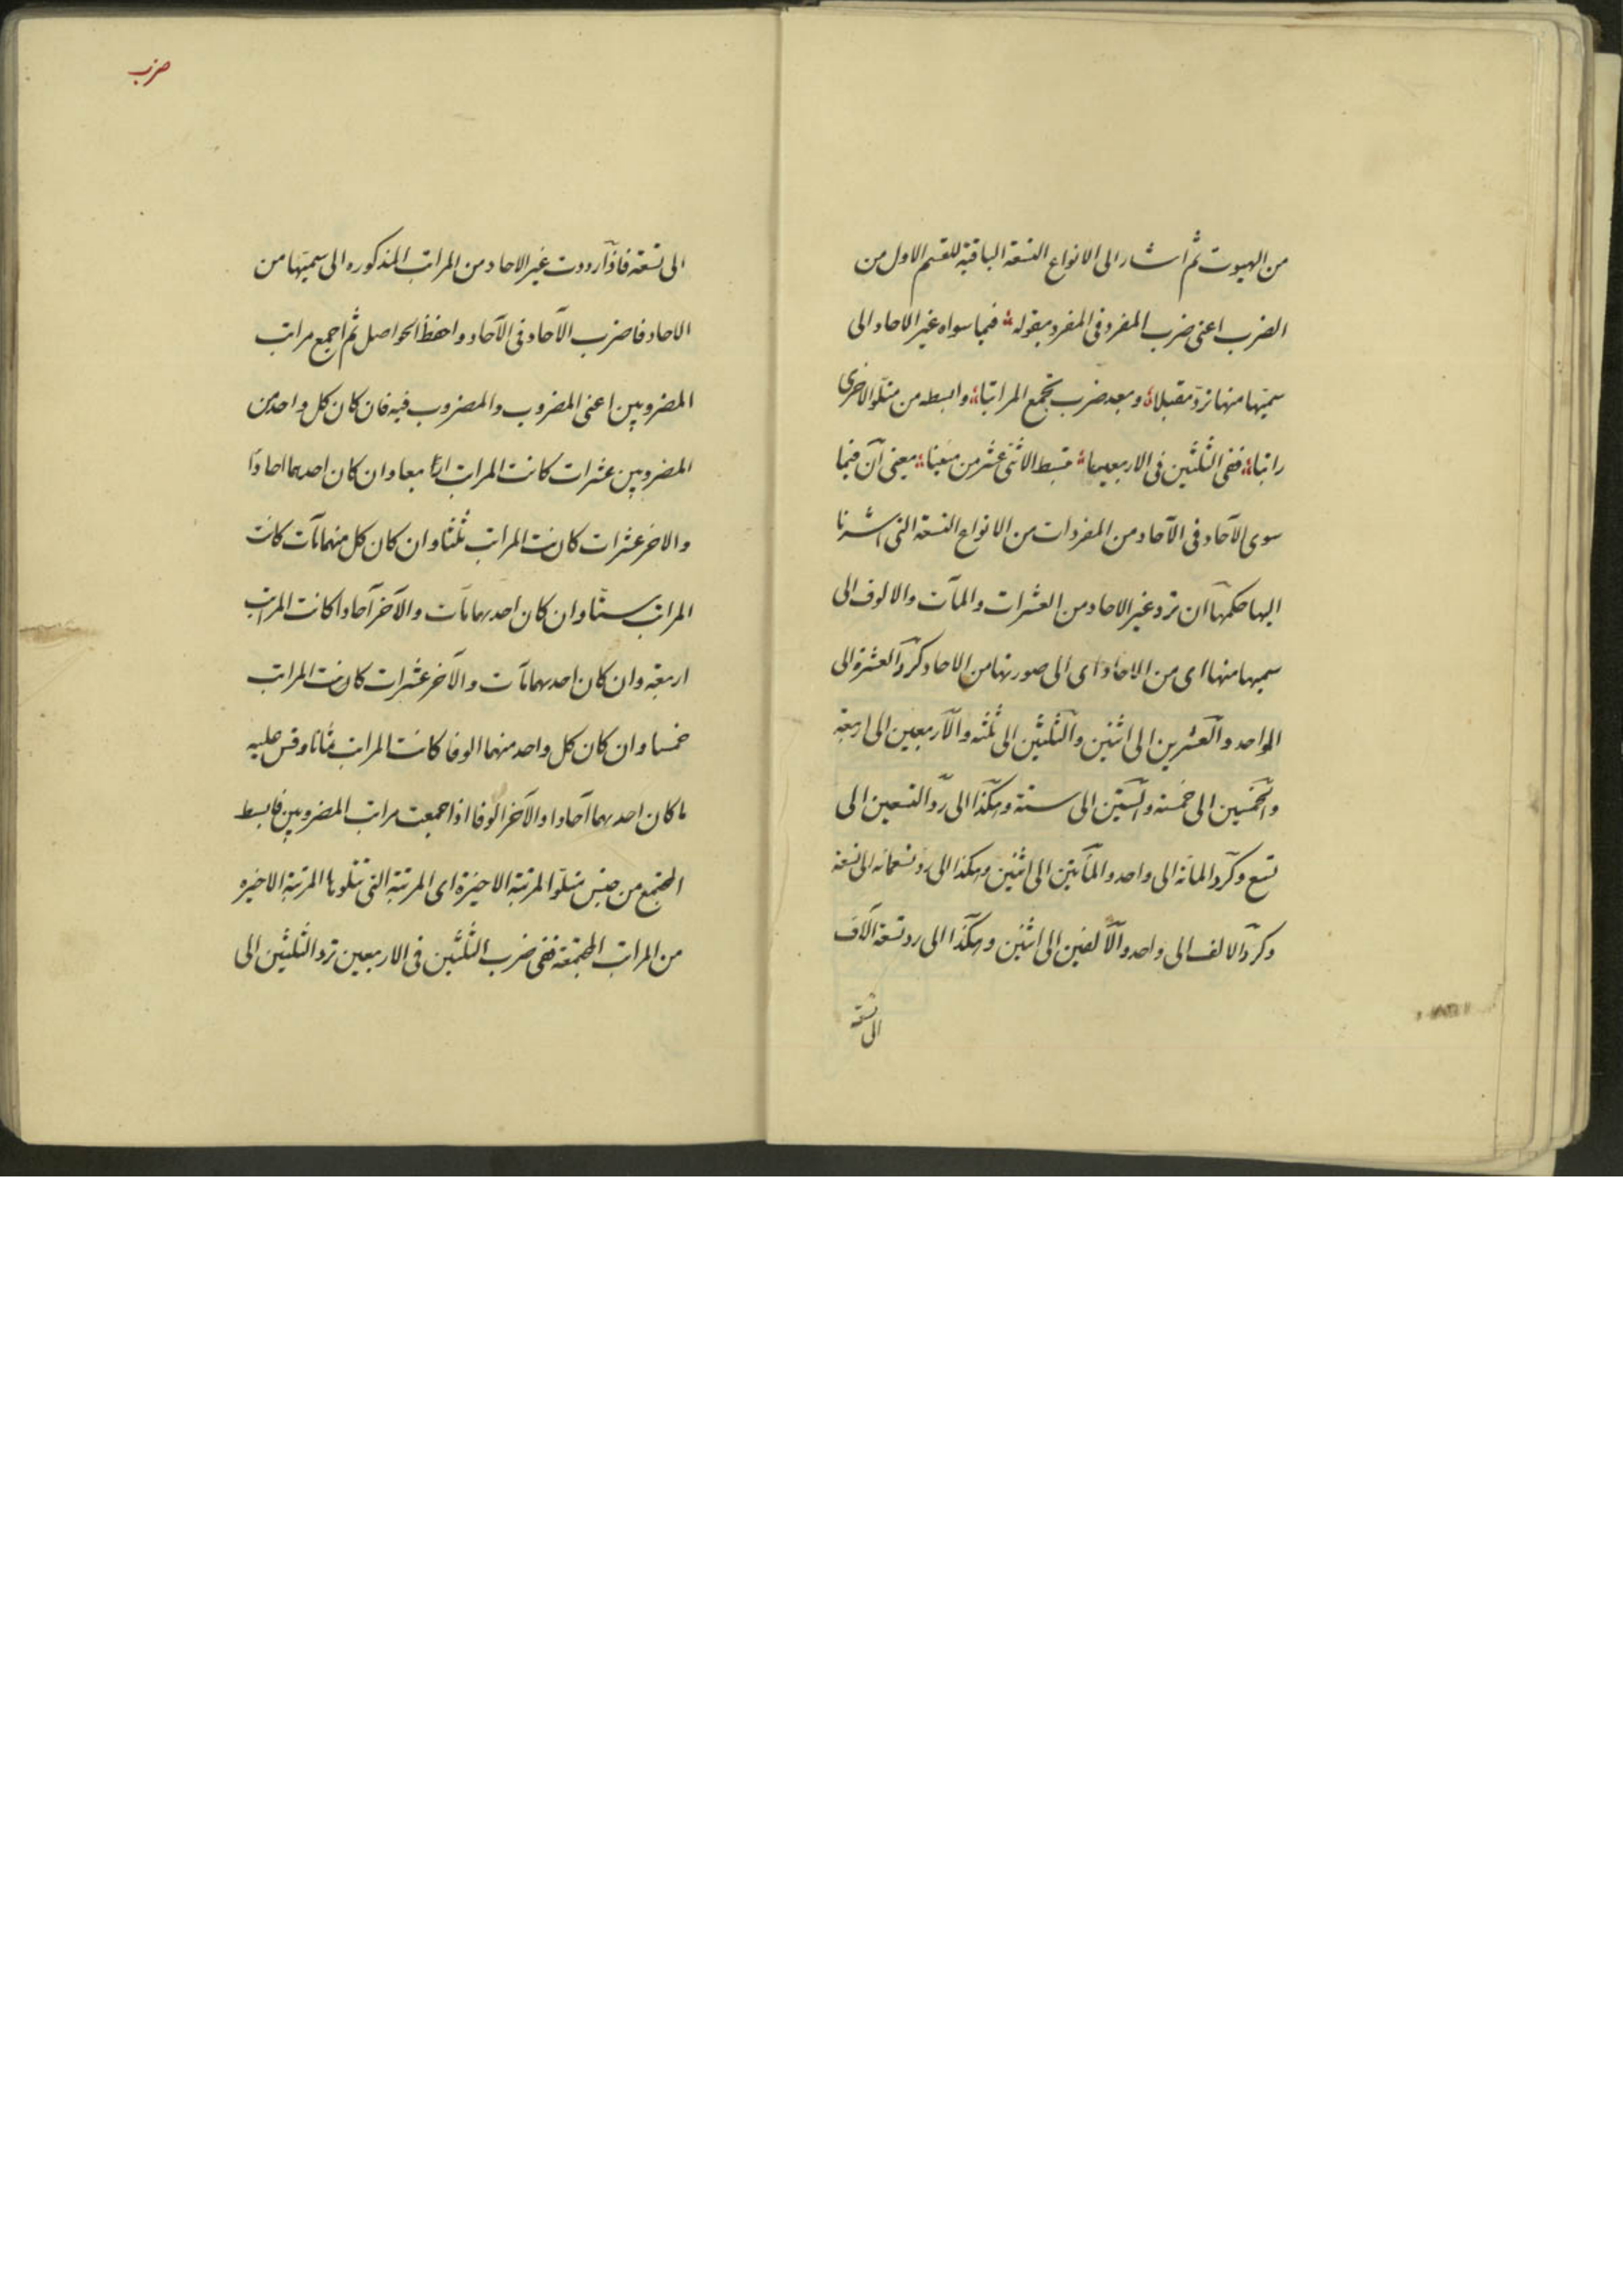 من البيوت ثم اشار الى الانواع التسعة الباقية للقسم الاول من
الضرب اعنى ضرب المفرد فى المفرد بقوله فيما سواه غير الاحاد الى
سميّها منها تردّ مقبلا وبعد ضرب تجمع المراتبا وابسطه من متلوّ الاخرى
راتبا ففى الثلثين فى الاربعينا تبسط الاثنى عشر من مئينا يعنى ان فيما
سوى الآحاد فى الآحاد من المفردات من الانواع التسعة التى اشرنا
اليها حكمها ان ترد غير الاحاد من العشرات والمآت والالوف الى
سميها منها اى من الاحاد اى الى صورتها من الاحاد كردّ العشرة الى
الواحد والعشرين الى اثنين والثلثين الى ثلثه والاربعين الى اربعة
والخمسين الى خمسة والستين الى ستة وهكذا الى ردّ التسعين الى
تسع وكردّ المائة الى واحد والمأتين الى اثنين وهكذا الى رد تسعمائه الى تسعة
وكردّ الالف الى واحد والالفين الى اثنين وهكذا الى رد تسعة الآف
الى تسعة
ضرب
الى تسعة فاذا رددت غير الاحاد من المراتب المذكوره الى سميّها من
الاحاد فاضرب الآحاد فى الآحاد واحفظ الحواصل ثم اجمع مراتب
المضروبين اعنى المضروب والمضروب فيه فان كان كل واحد من
المضروبين عشرات كانت المراتب اربعا وان كان احدهما احادا
والاخر عشرات كانت المراتب ثلثا وان كان كل منهما مآت كانت
المراتب ستا وان كان احدهما مآت والآخر آحادا كانت المراتب
اربعة وان كان احدهما مآت والآخر عشرات كانت المراتب
خمسا وان كان كل واحد منهما الوفا كانت المراتب ثمانا وقس عليه
ما كان احدهما آحادا والآخر الوفا اذا جمعت مراتب المضروبين فابسط
المجتمع من جنس متلوّ المرتبة الاخيرة اى المرتبة التى تتلوها المرتبة الاخيره
من المراتب المجتمعة ففى ضرب الثلثين فى الاربعين ترد الثلثين الى